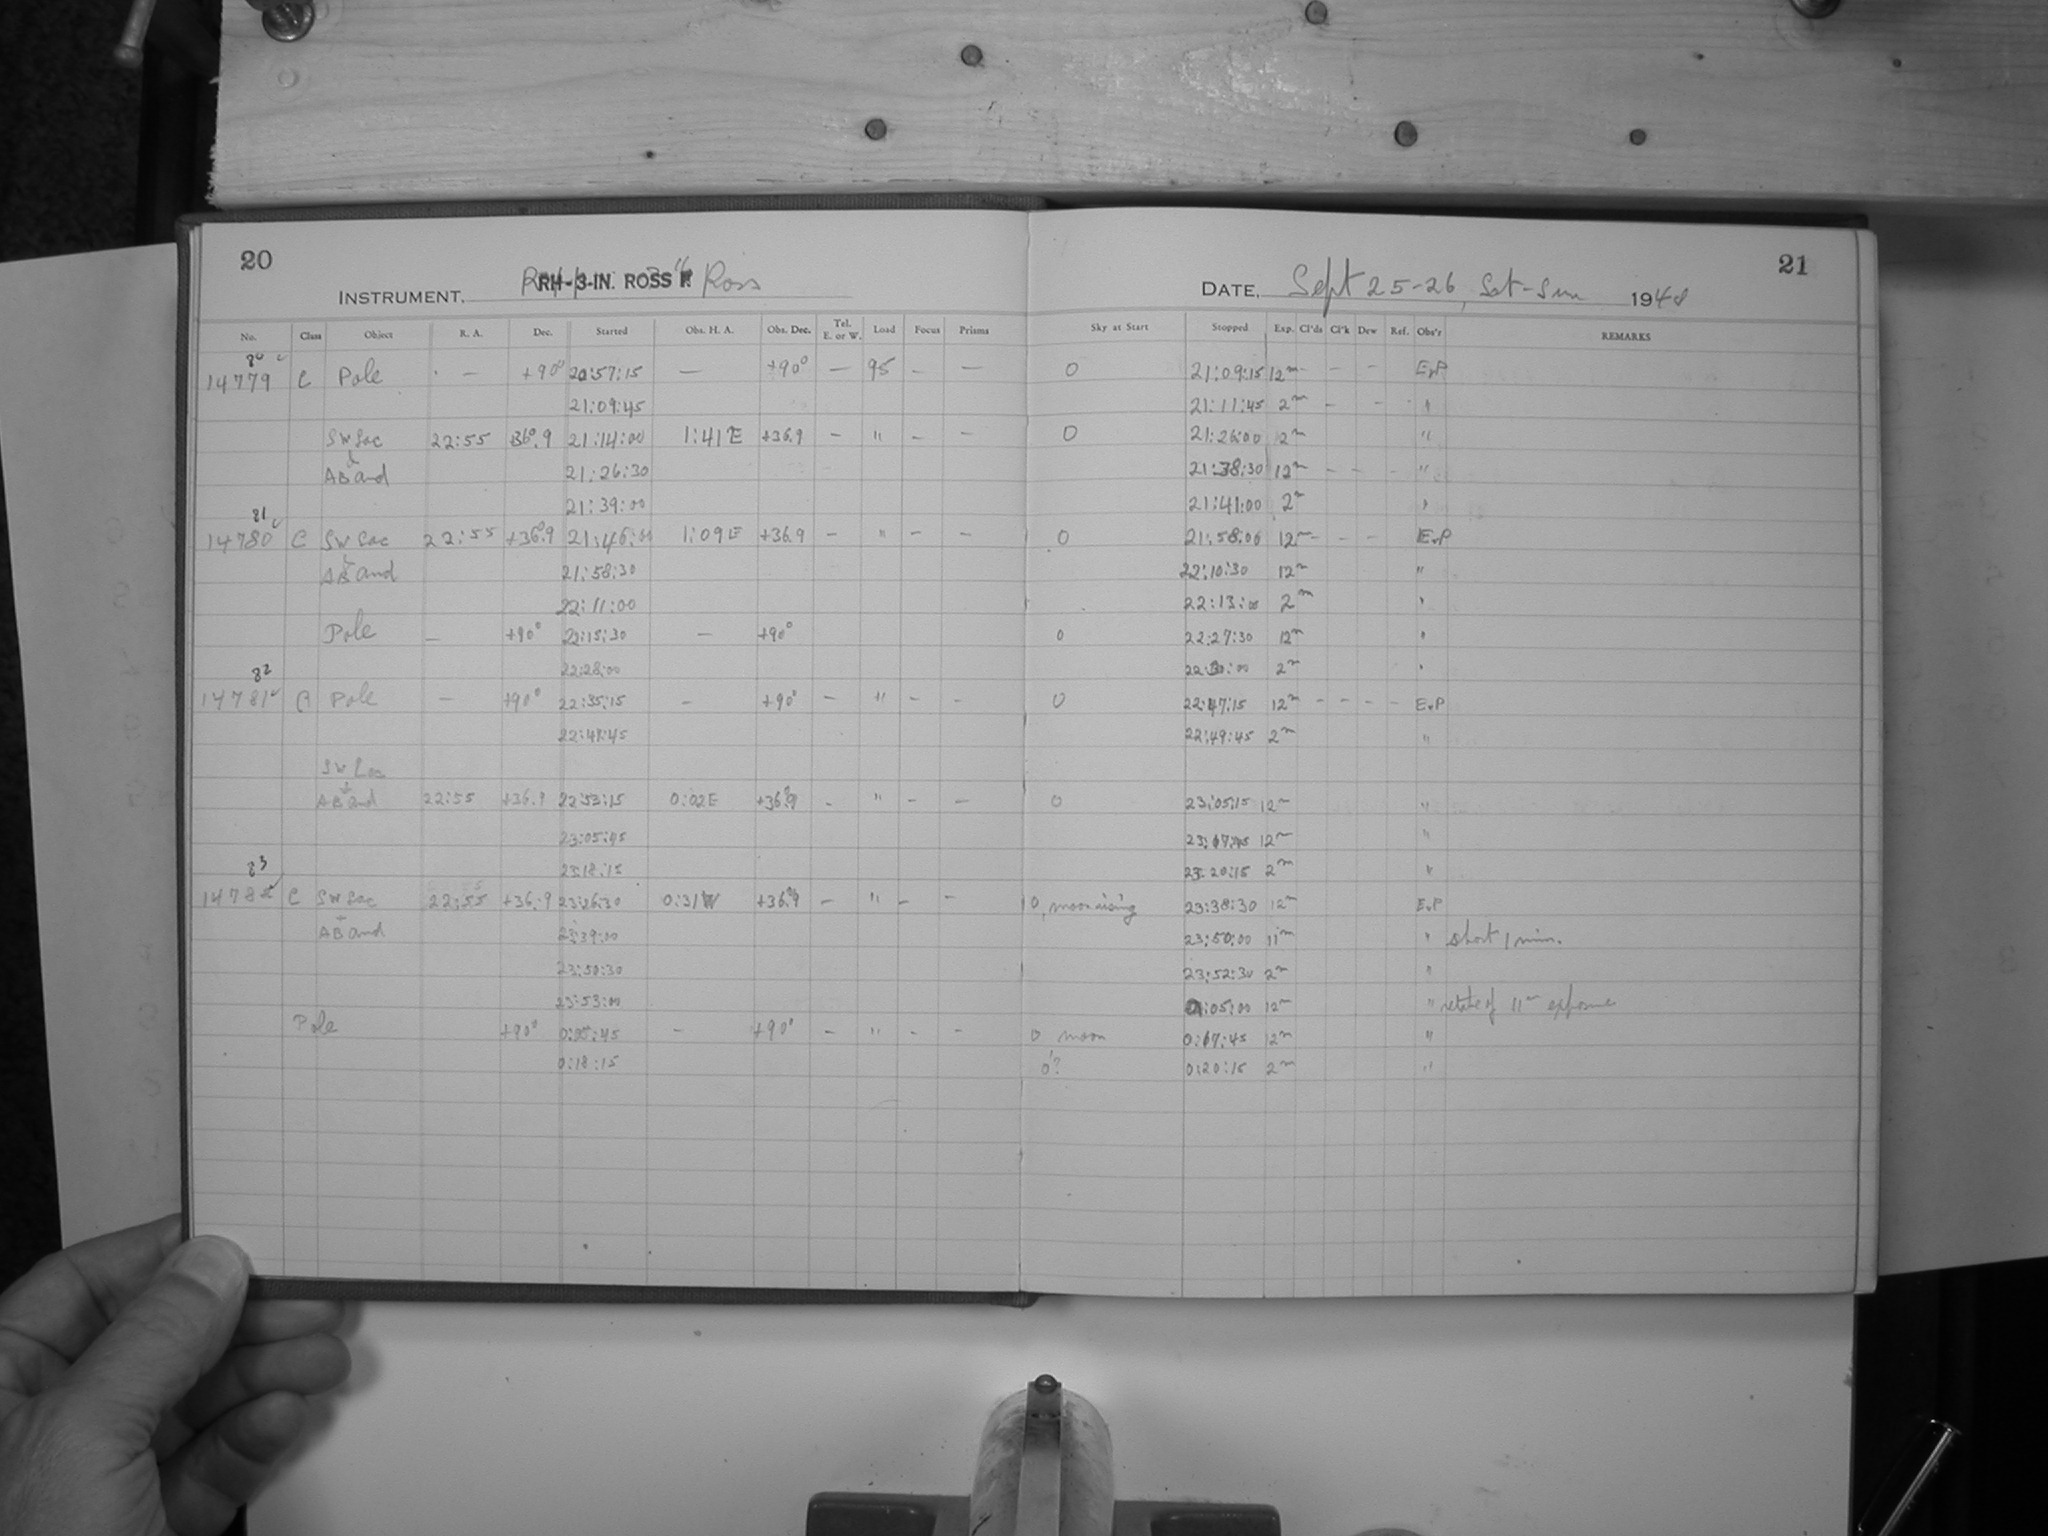 20
INSTRUMENT, RH-3-IN. ROSS Ross
No. Class Object R. A. Dec. Started Obs. H. A. Obs. Dec. Tel. E. or W. Load Focus Prisms
80
14779 C Pole - +90° 20:57:15 — +90° — 95 - —
21:09:45
SW Lac 22:55 36°.9 21:14:00 1:41 E +36.9 - " - -
AB And 21:26:30
21:39:00
81
14780 C SW Lac 22:55 +36°.9 21:46:00 1:09 E +36.9 - " - -
AB And 21:58:30
22:11:00
Pole — +90° 22:15:30 — +90°
22:28:00
82
14781 C Pole - +90° 22:35:15 - +90° - " - -
22:47:45
SW Lac
AB And 22:55 +36.9 22:53:15 0:02E +36°.9 - " - -
23:05:45
23:18:15
83
14782 C SW Lac 22:55 +36.9 23:26:30 0:31W +36°.9 - " - -
AB And 23:39:00
23:50:30
23:53:00
Pole +90° 0:05:45 - +90° - " - -
0:18:15
21
DATE, Sept 25-26, Sat-Sun 1948
Sky at Start Stopped Exp. Cl'ds Cl'k Dew Ref. Obs'r REMARKS
0 21:09:15 12m - - - EvP
21:11:45 2m - - "
0 21:26:00 12m "
21:38:30 12m - - - "
21:41:00 2m "
0 21:58:00 12m - - - EvP
22:10:30 12m "
22:13:00 2m "
0 22:27:30 12m "
22:30:00 2m "
0 22:47:15 12m - - - - EvP
22:49:45 2m "
0 23:05:15 12m "
23:17:45 12m "
23:20:15 2m "
0, moon rising 23:38:30 12m EvP
23:50:00 11m " short 1 min.
23:52:30 2m "
0:05:00 12m " retake of 11m exposure
0 moon 0:17:45 12m "
0? 0:20:15 2m "